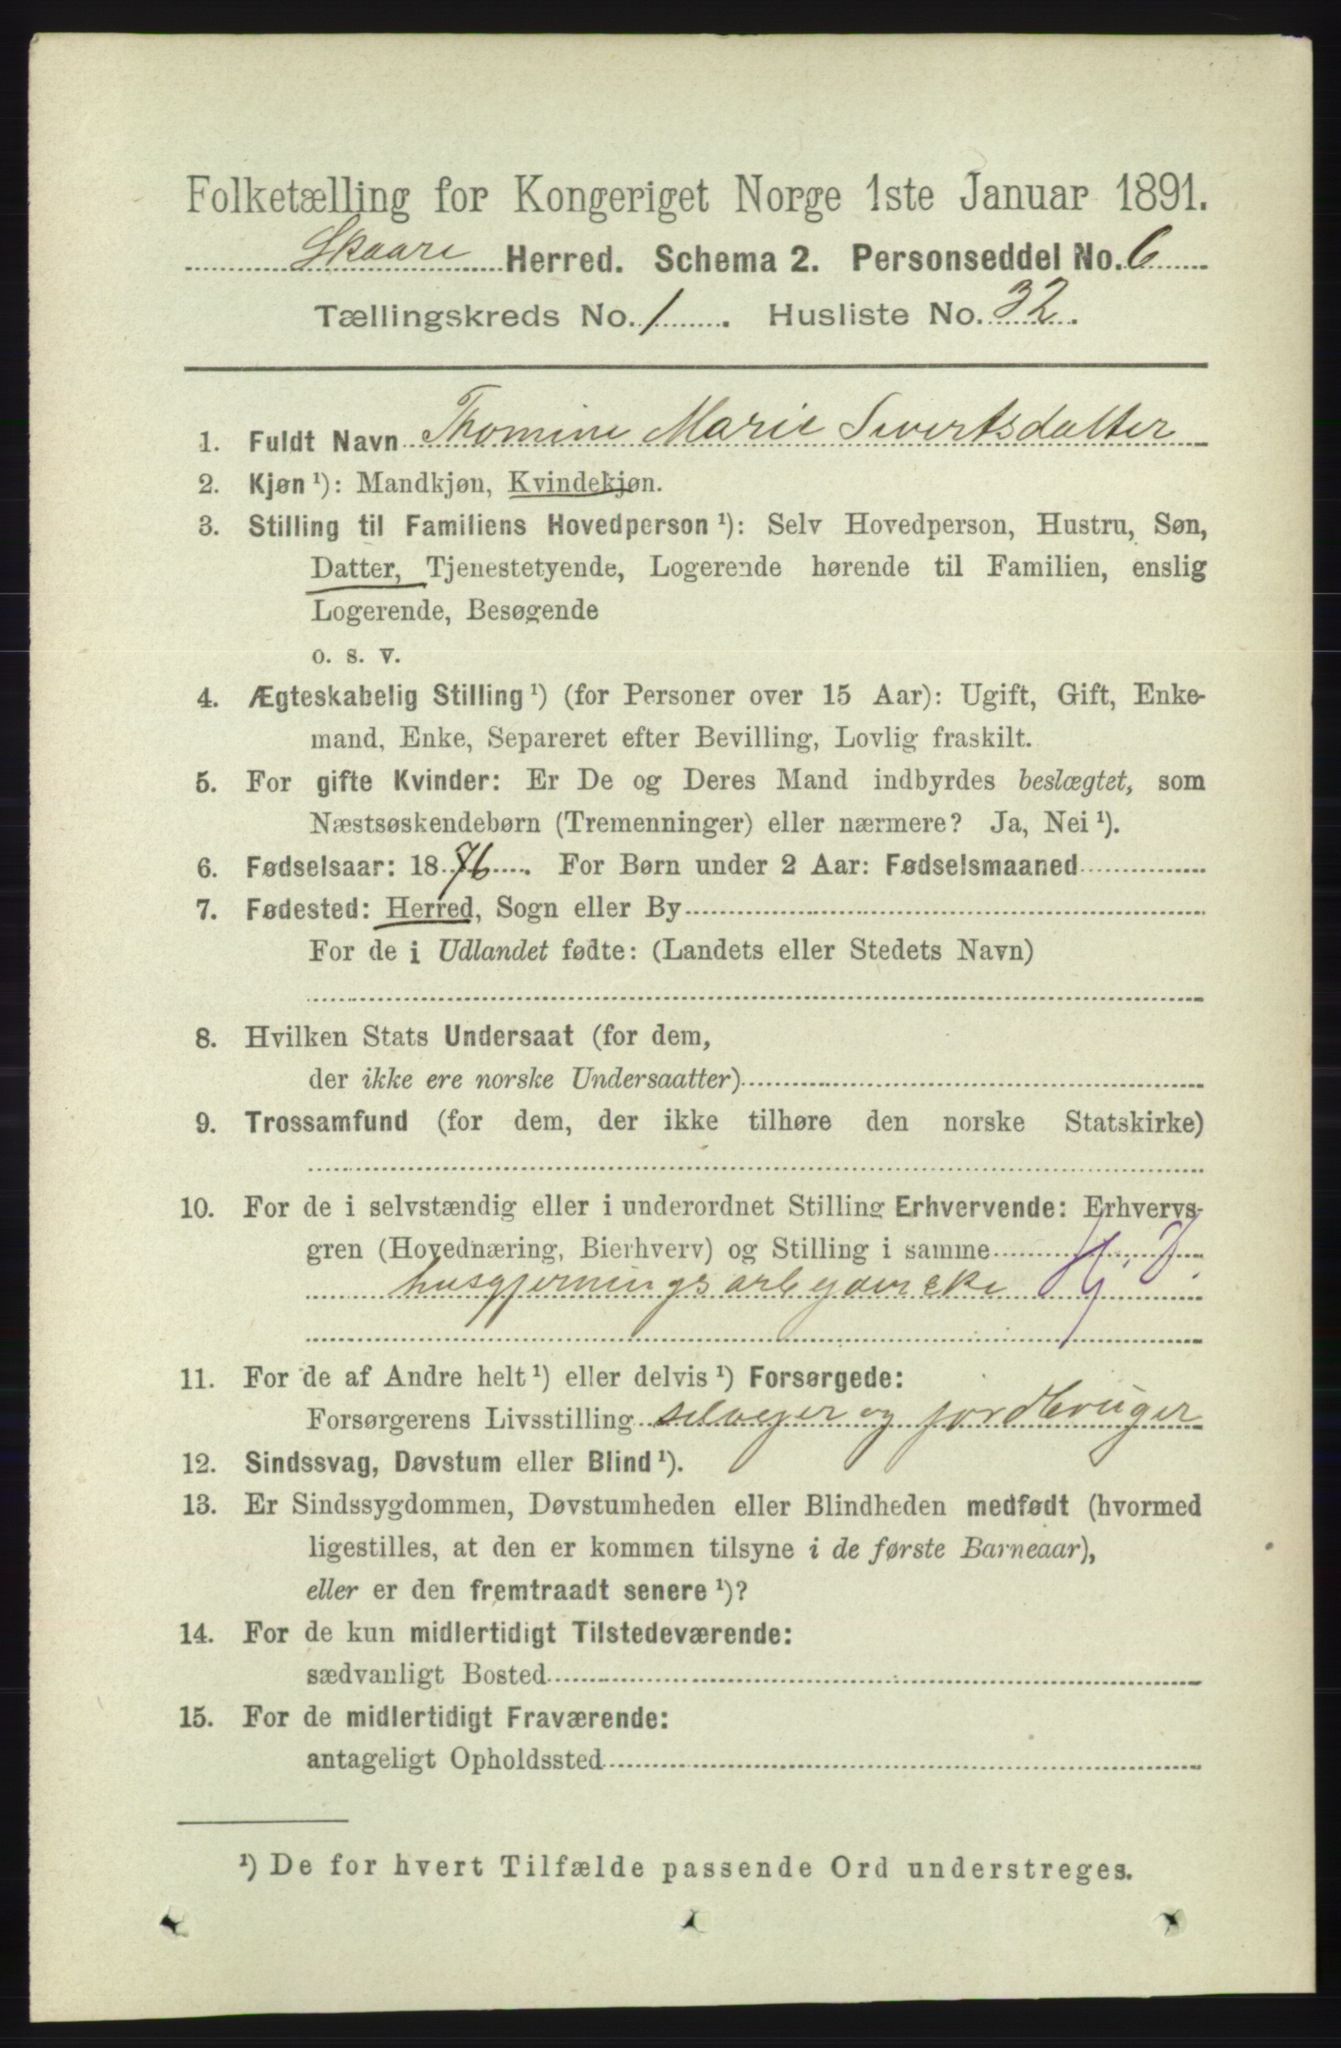 Folketælling for Kongeriget Norge 1ste Januar 1891.
Skaare Herred. Schema 2. Personseddel No. 6
Tællingskreds No. 1. Husliste No. 32.
1. Fuldt Navn Thomine Marie Sivertsdatter
2. Kjøn ¹): Mandkjøn, Kvindekjøn.
3. Stilling til Familiens Hovedperson ¹): Selv Hovedperson, Hustru, Søn,
Datter, Tjenestetyende, Logerende hørende til Familien, enslig
Logerende, Besøgende
o. s. v.
4. Ægteskabelig Stilling ¹) (for Personer over 15 Aar): Ugift, Gift, Enke-
mand, Enke, Separeret efter Bevilling, Lovlig fraskilt.
5. For gifte Kvinder: Er De og Deres Mand indbyrdes beslægtet, som
Næstsøskendebørn (Tremenninger) eller nærmere? Ja, Nei ¹).
6. Fødselsaar: 1876. For Børn under 2 Aar: Fødselsmaaned
7. Fødested: Herred, Sogn eller By
For de i Udlandet fødte: (Landets eller Stedets Navn)
8. Hvilken Stats Undersaat (for dem,
der ikke ere norske Undersaatter)
9. Trossamfund (for dem, der ikke tilhøre den norske Statskirke)
10. For de i selvstændig eller i underordnet Stilling Erhvervende: Erhvervs-
gren (Hovednæring, Bierhverv) og Stilling i samme
husgjerningsarbejderske
11. For de af Andre helt ¹) eller delvis ¹) Forsørgede:
Forsørgerens Livsstilling selveier og jordbruger
12. Sindssvag, Døvstum eller Blind ¹).
13. Er Sindssygdommen, Døvstumheden eller Blindheden medfødt (hvormed
ligestilles, at den er kommen tilsyne i de første Barneaar),
eller er den fremtraadt senere ¹)?
14. For de kun midlertidigt Tilstedeværende:
sædvanligt Bosted
15. For de midlertidigt Fraværende:
antageligt Opholdssted
¹) De for hvert Tilfælde passende Ord understreges.